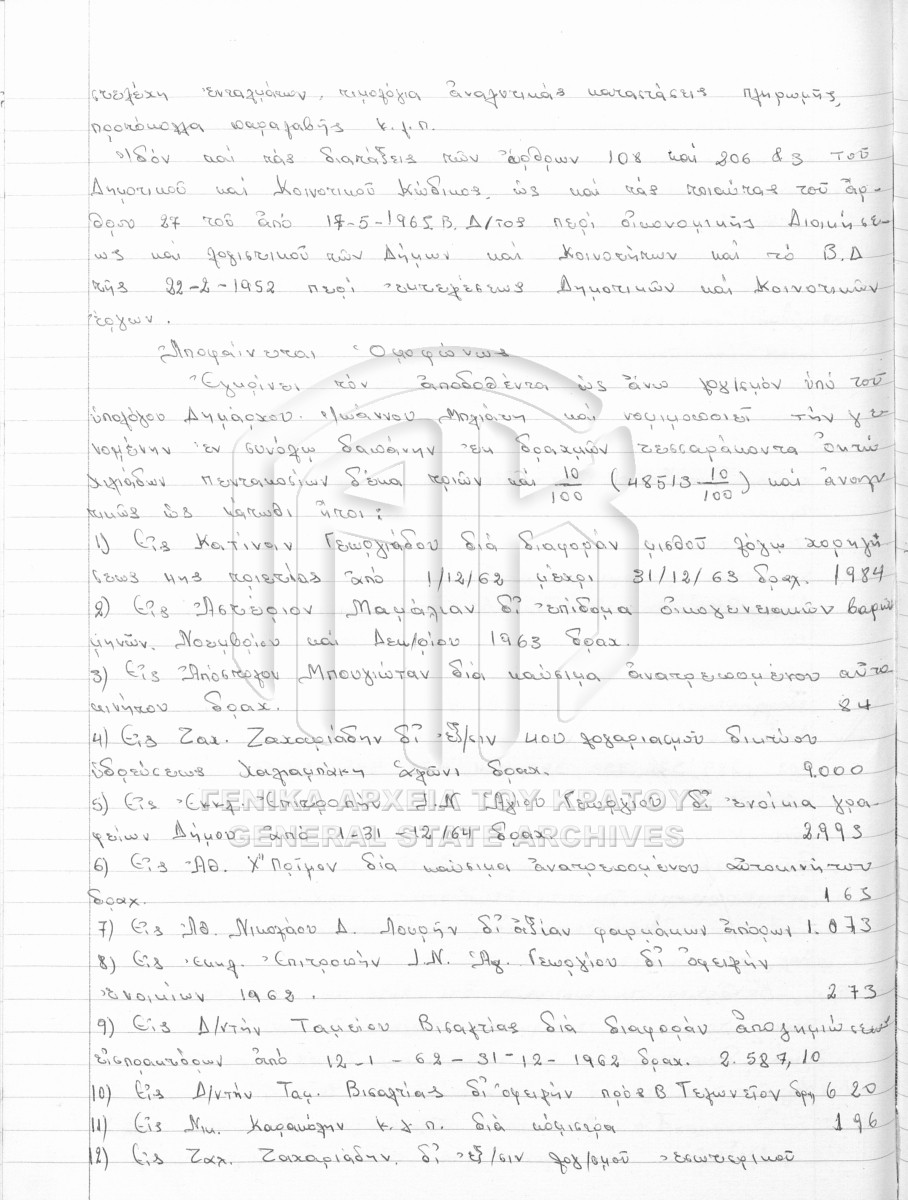 στελέχη ἐνταλμάτων, τιμολόγια ἀναλυτικάς καταστάσεις πληρωμῆς,
πρωτόκολλα παραλαβῆς κ.λ.π.
Ἰδόν καί τάς διατάξεις τῶν ἄρθρων 108 καί 206 & 3 τοῦ
Δημοτικοῦ καί Κοινοτικοῦ Κώδικος, ὡς καί τάς τοιαύτας τοῦ ἄρ-
θρου 27 τοῦ ἀπό 17-5-1965 Β. Δ/τος περί οἰκονομικῆς Διοικήσε-
ως καί λογιστικοῦ τῶν Δήμων καί Κοινοτήτων καί τό Β.Δ
τῆς 22-2-1952 περί ἐκτελέσεως Δημοτικῶν καί Κοινοτικῶν
ἔργων.
Ἀποφαίνεται Ὁμοφώνως
Ἐγκρίνει τόν ἀποδοθέντα ὡς ἄνω λογ/σμόν ὑπό τοῦ
ὑπολόγου Δημάρχου Ἰωάννου καί νομιμοποιεῖ τήν γε-
νομένην ἐν συνόλῳ δαπάνην ἐκ δραχμῶν τεσσαράκοντα ὀκτώ
χιλιάδων πεντακοσίων δέκα τριῶν καί 10/100 (48513 10/100) καί ἀναλυ
τικῶς ὡς κάτωθι ἤτοι:
1) Εἰς Κατίναν Γεωργιάδου διά διαφοράν μισθοῦ λόγῳ χορηγή
σεως τριετίας ἀπό 1/12/62 μέχρι 31/12/63 δραχ. 1984
2) Εἰς Ἀστέριον Μαμάλιαν δι' ἐπίδομα οἰκογενειακῶν βαρῶν
μηνῶν Νοεμβρίου καί Δεκ/ρίου 1963 δραχ.
3) Εἰς Ἀπόστολον Μπουγιώταν διά καύσιμα ἀνατρεπομένου αὐτο
κινήτου δραχ. 84
4) Εἰς Ζαχ. Ζαχαριάδην δι' ἐξ/σιν 4ου λογαριασμοῦ δικτύου
ὑδρεύσεως Χαλαμπάκη δραχ. 9.000
5) Εἰς Ἐκκλ. Ἐπιτροπήν Ι.Ν. Ἁγίου Γεωργίου δι' ἐνοίκια γρα-
φείων Δήμου ἀπό 1-31-12/64 δραχ. 2993
ΓΕΝΙΚΑ ΑΡΧΕΙΑ ΤΟΥ ΚΡΑΤΟΥΣ
GENERAL STATE ARCHIVES
6) Εἰς Ἀθ. Χ"Πρίμον διά καύσιμα ἀνατρεπομένου αὐτοκινήτου
δραχ. 163
7) Εἰς Ἀθ. Νικολάου Δ. Λουρῆν δι' ἀξίαν φαρμάκων ἀπόρων 1.073
8) Εἰς ἐκκλ. Ἐπιτροπήν Ι.Ν. Ἁγ. Γεωργίου δι' ὀφειλήν
ἐνοικίων 1962. 273
9) Εἰς Δ/ντήν Ταμείου Βισαλτίας διά διαφοράν ἀποζημιώσεως
εἰσπρακτόρων ἀπό 12-1-62-31-12-1962 δραχ. 2.587,10
10) Εἰς Δ/ντήν Ταμ. Βισαλτίας δι' ὀφειλήν πρός Β Τελωνεῖον δρχ 620
11) Εἰς Νικ. Καρακόλην κ.λ.π. διά κόμιστρα 196
12) Εἰς Ζαχ. Ζαχαριάδην, δι' ἐξ/σιν λογ/σμοῦ ἐσωτερικοῦ